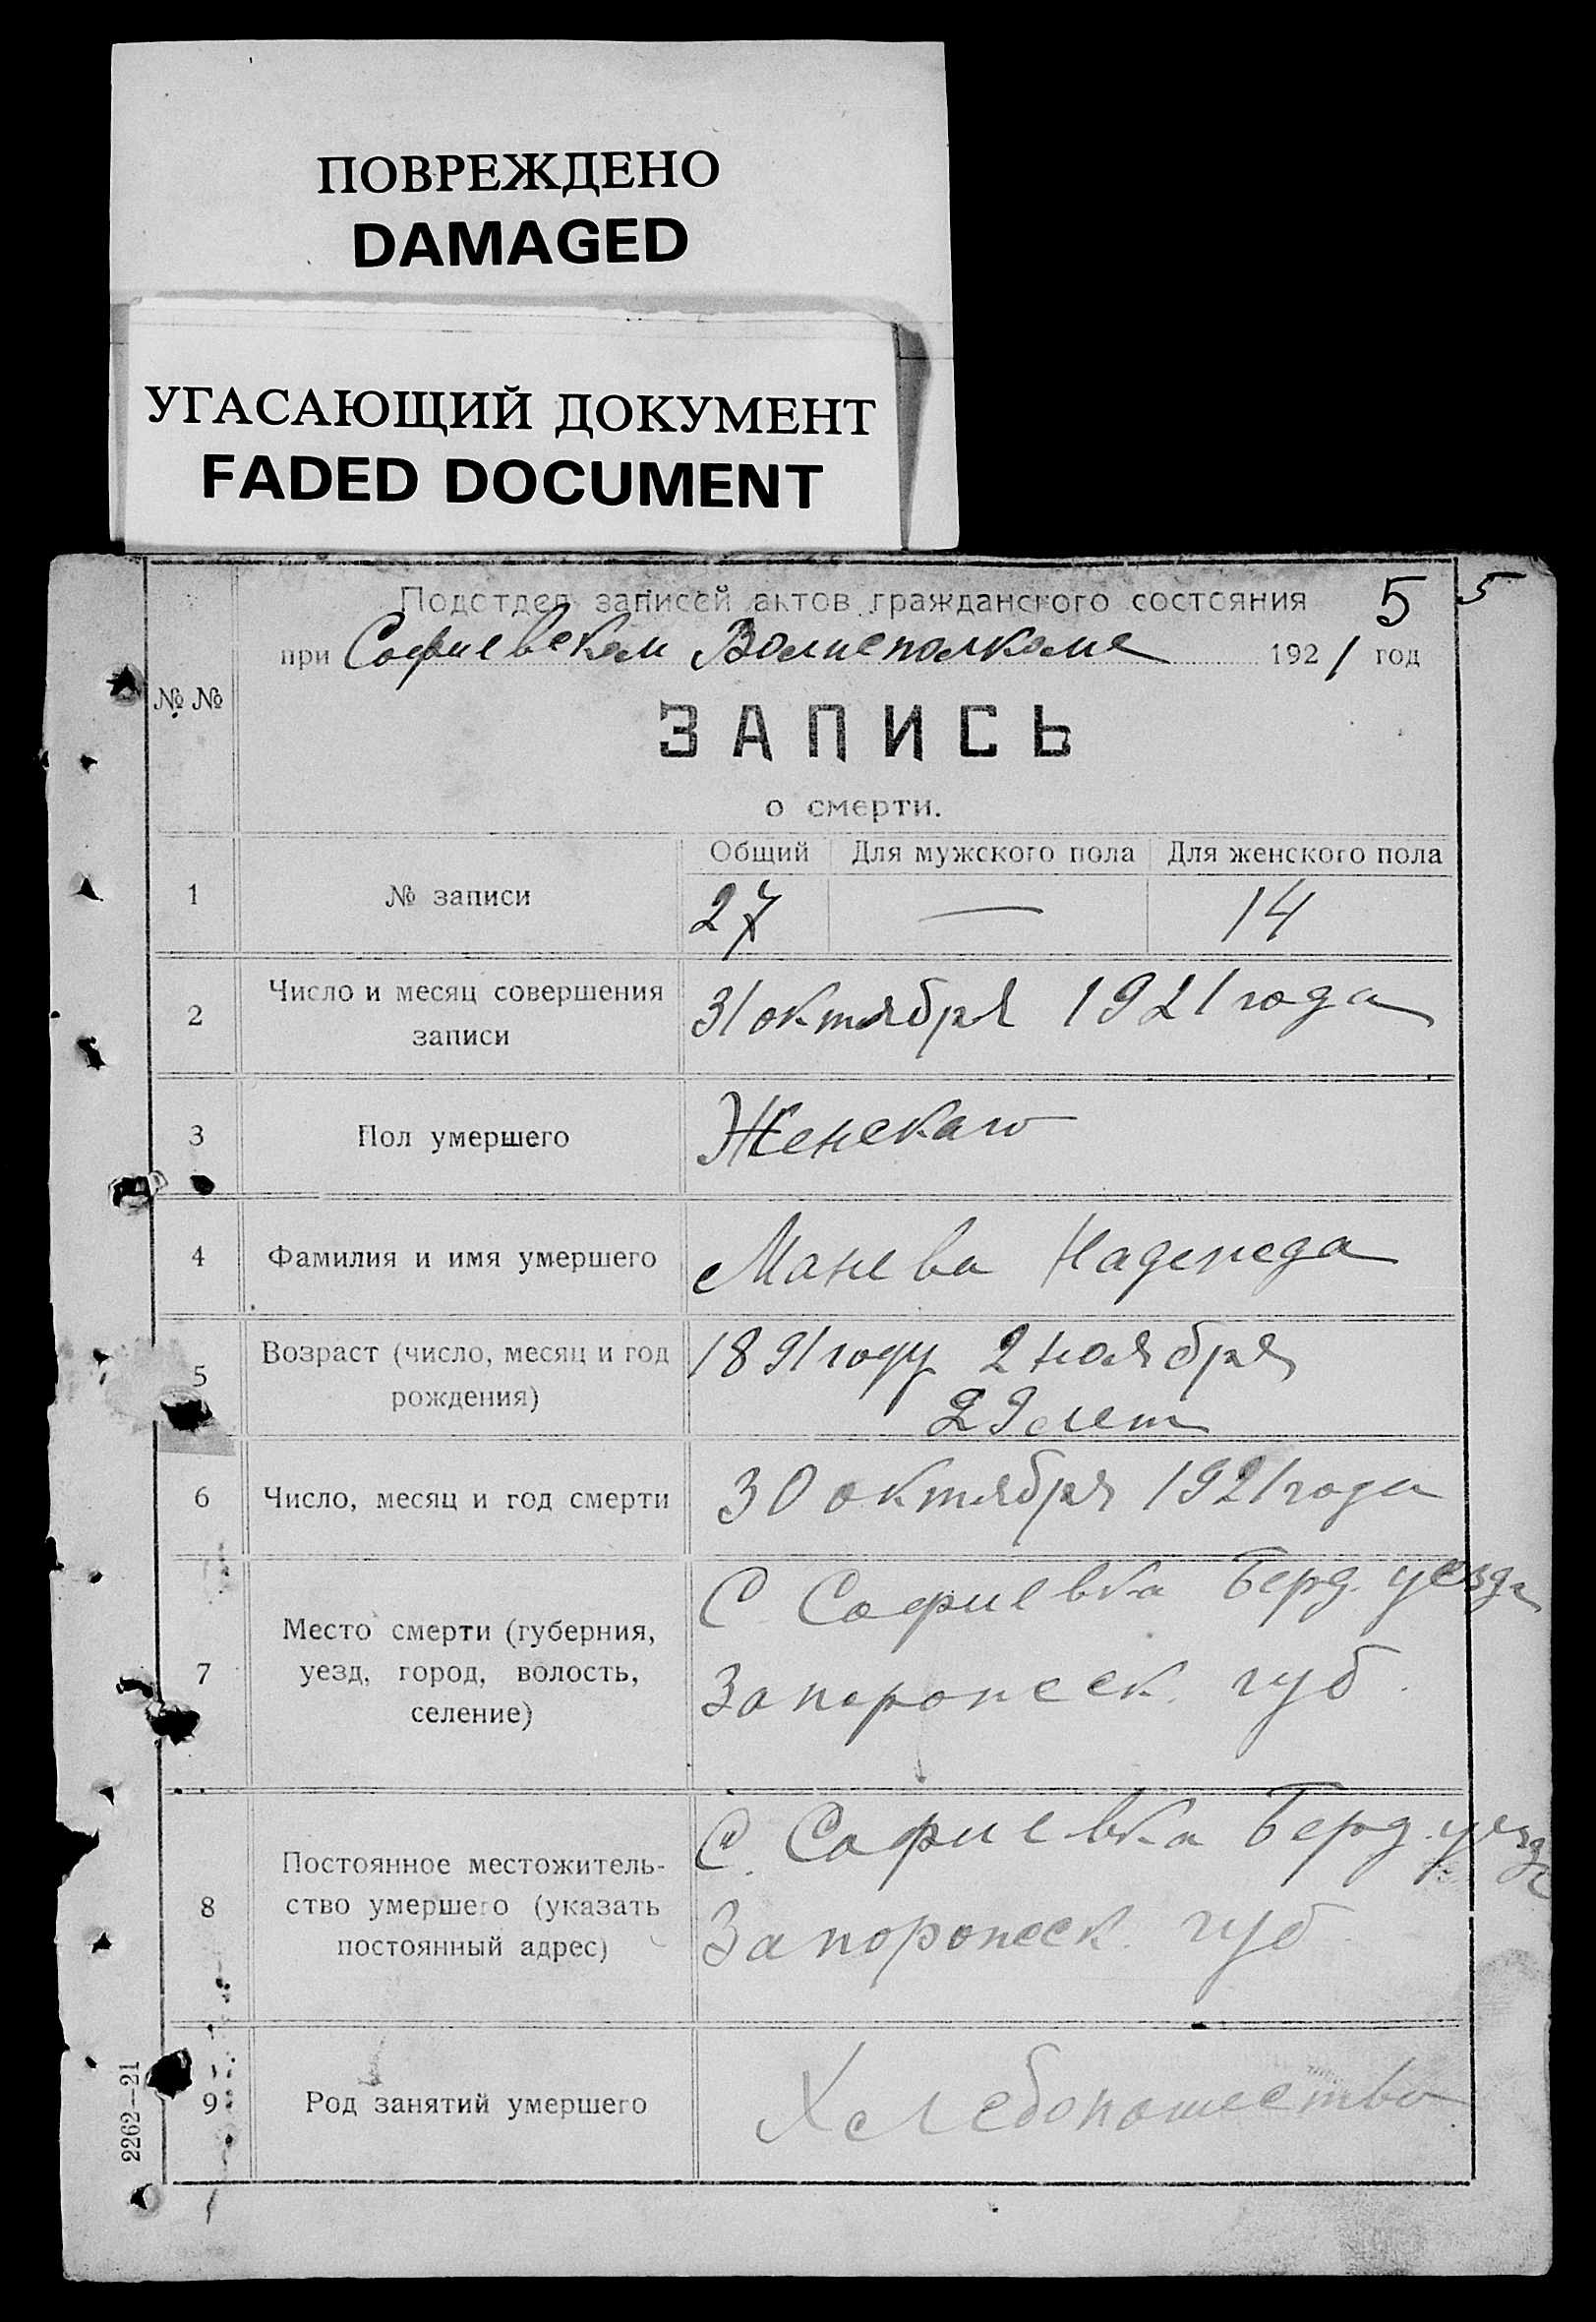 ПОВРЕЖДЕНО
DAMAGED
УГАСАЮЩИЙ ДОКУМЕНТ
FADED DOCUMENT
5 5
Подотдел записей актов гражданского состояния
при Софиевском Волисполкоме 1921 год
№ №
ЗАПИСЬ
о смерти.
Общий Для мужского пола Для женского пола
1 № записи 27 — 14
2 Число и месяц совершения
записи 31 октября 1921 года
3 Пол умершего Женскаго
4 Фамилия и имя умершего Манева Надежда
5 Возраст (число, месяц и год
рождения) 1891 году 2 ноября
29 лет
6 Число, месяц и год смерти 30 октября 1921 года
7 Место смерти (губерния,
уезд, город, волость,
селение)
С. Софиевка Берд. уезда
Запорожск. губ.
8 Постоянное местожитель-
ство умершего (указать
постоянный адрес)
С. Софиевка Берд. уезда
Запорожск. губ.
9 Род занятий умершего Хлебопашество
2262—21